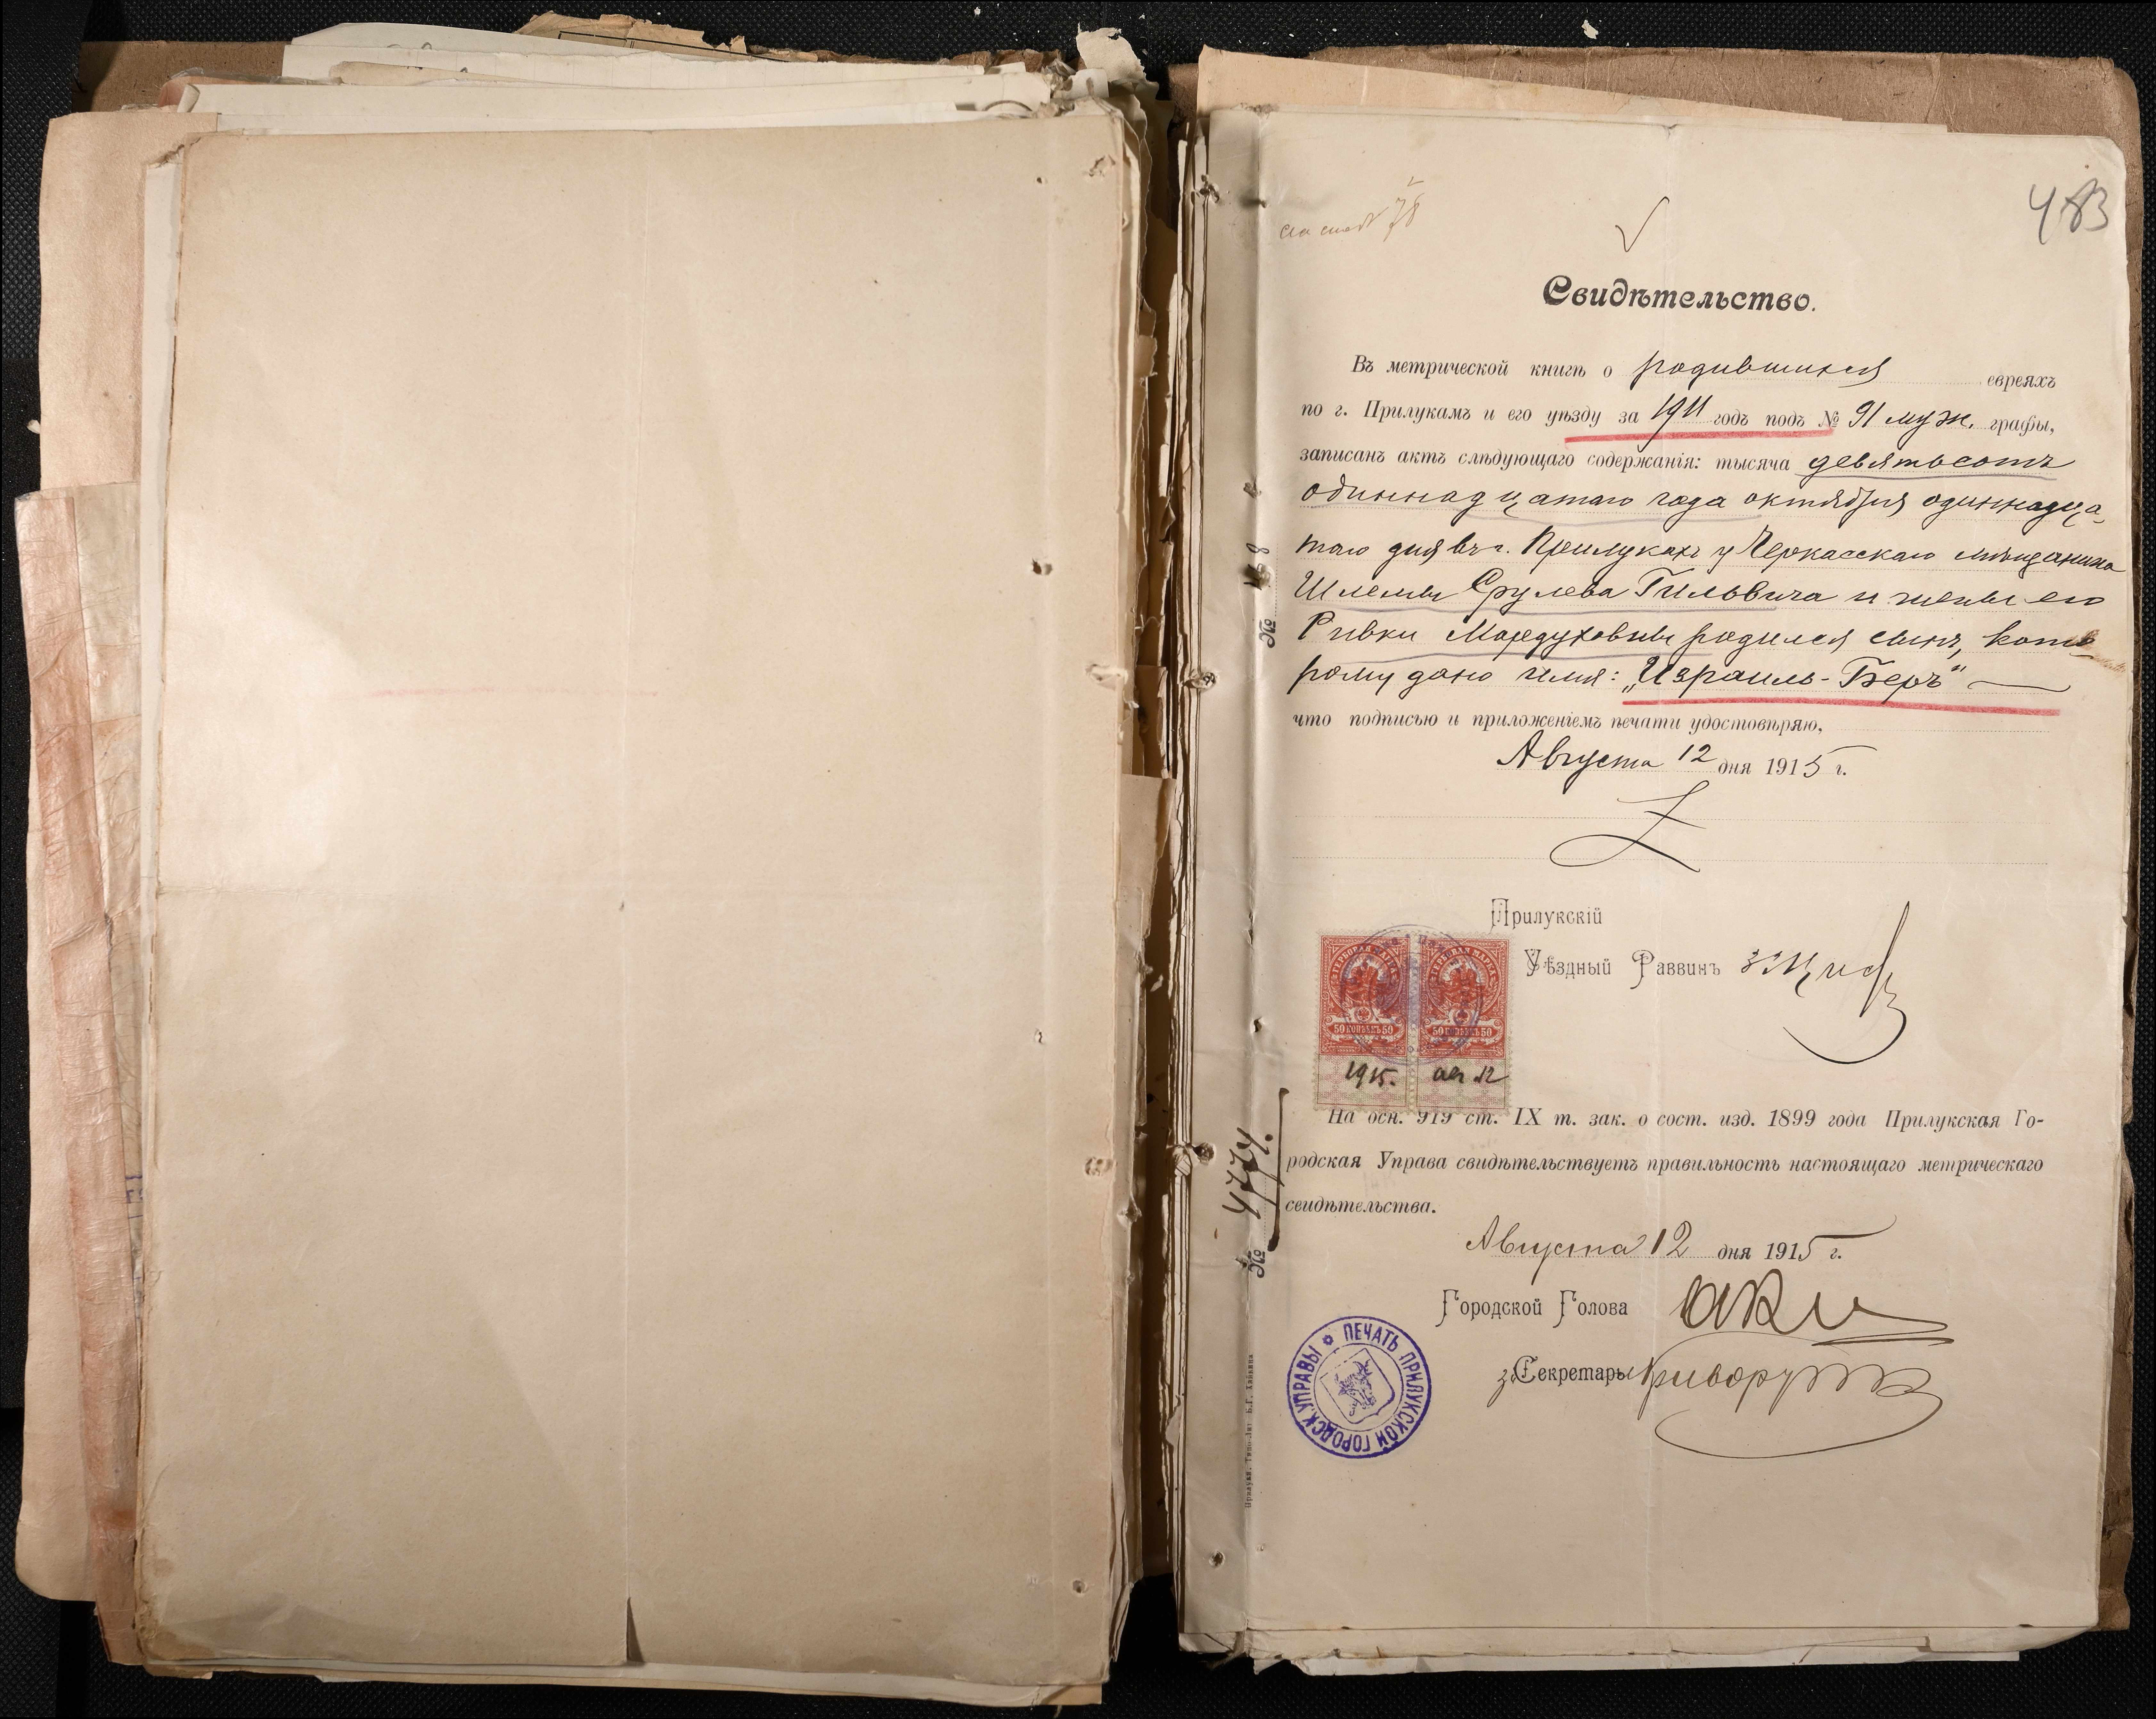 483
Свидѣтельство.
Въ метрической книгѣ о родившихся евреяхъ
по г. Прилукамъ и его уѣзду за 1911 годъ подъ № 91 муж. графы,
записанъ актъ слѣдующаго содержанія: тысяча девятьсотъ
одиннадцатаго года октября одиннадца-
таго дня въ г. Прилукахъ у Черкасскаго мѣщанина
Шлемы Срулева Гильвича и жены его
Ривки Мордуховны родился сынъ, кото-
рому дано имя: „Израиль-Беръ"
что подписью и приложеніемъ печати удостовѣряю,
Августа 12 дня 1915 г.
Прилукскій
Уѣздный Раввинъ
ГЕРБОВАЯ МАРКА ГЕРБОВАЯ МАРКА
50 КОПѢЕКЪ 50 50 КОПѢЕКЪ 50
1915. авг 12
На осн. 919 ст. IX т. зак. о сост. изд. 1899 года Прилукская Го-
родская Управа свидѣтельствуетъ правильность настоящаго метрическаго
свидѣтельства.
Августа 12 дня 1915 г.
Городской Голова
за Секретарь
ПЕЧАТЬ ПРИЛУКСКОЙ ГОРОДСК. УПРАВЫ
№ 468
№ 4774.
Прилуки, Типо-Лит. Б.Г. Хайкина